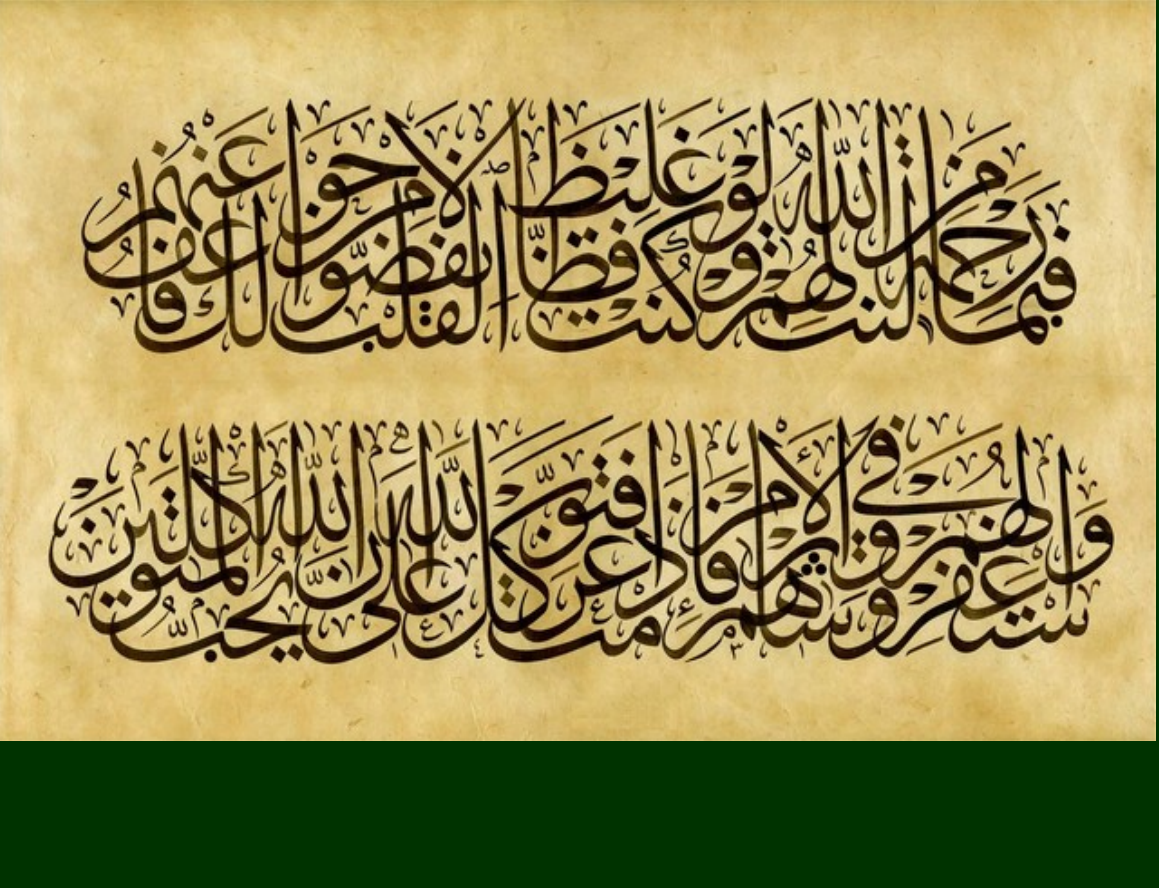 فبما رحمة من الله لنت لهم ولو كنت فظا غليظ القلب لانفضوا من حولك فاعف عنهم
واستغفر لهم وشاورهم في الأمر فإذا عزمت فتوكل على الله إن الله يحب المتوكلين